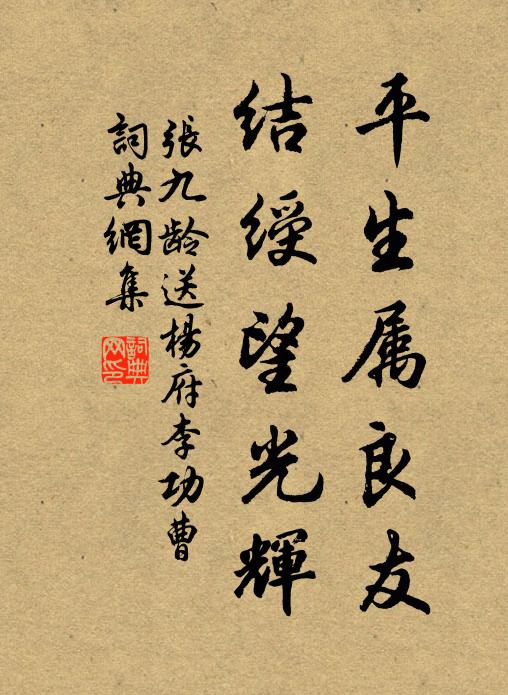 平生属良友
结绶望光輝
張九龄送楊府李功曹
詞典網集
詞典网印